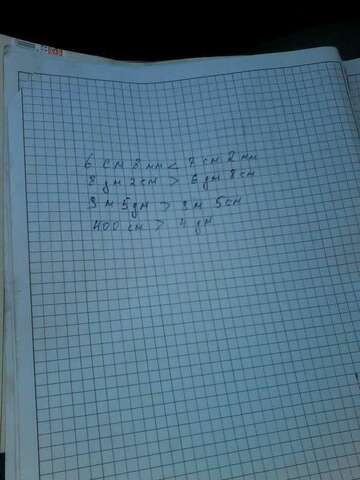 6 см 8 мм < 7 см 2 мм
8 дм 2 см > 6 дм 8 см
3 м 5 дм > 3 м 5 см
400 см > 4 дм